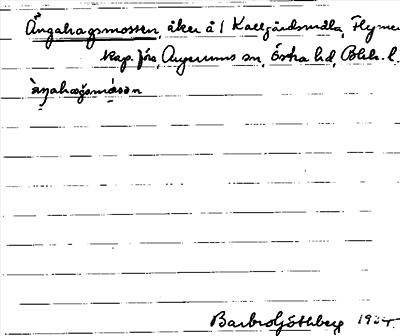 Ångahagsmossen, åker å 1 Kalljärdsmåla, Flymen
kap. förs, Augerums sn, Östra hd, Blek. l.
åŋahagsmåsən
Barbro Göthberg 1934.